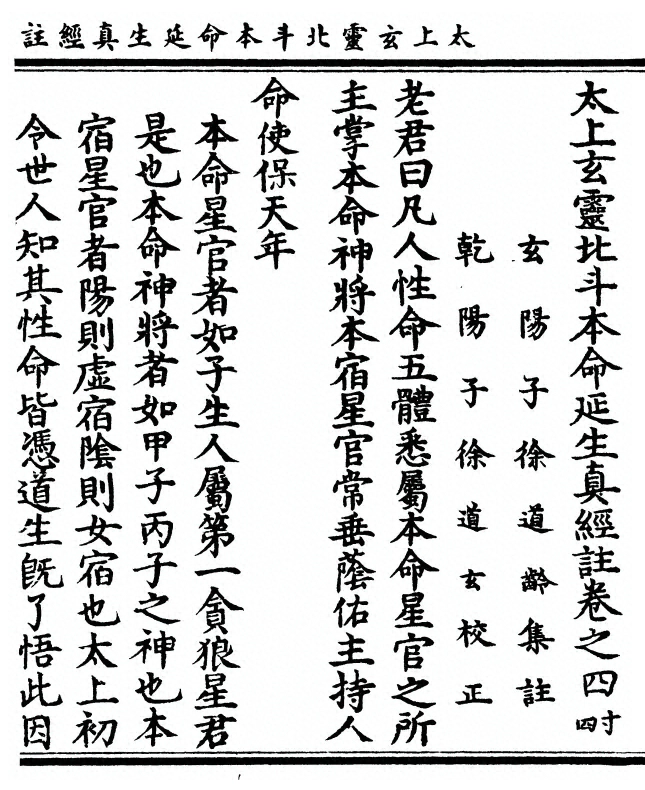 太上玄靈北斗本命延生真經註
太上玄靈北斗本命延生真經註卷之四 寸四
玄陽子徐道齡集註
乾陽子徐道玄校正
老君曰凡人性命五體悉屬本命星官之所
主掌本命神將本宿星官常垂蔭佑主持人
命使保天年
本命星官者如子生人屬第一貪狼星君
是也本命神將者如甲子丙子之神也本
宿星官者陽則虛宿陰則女宿也太上初
令世人知其性命皆憑道生旣了悟此因